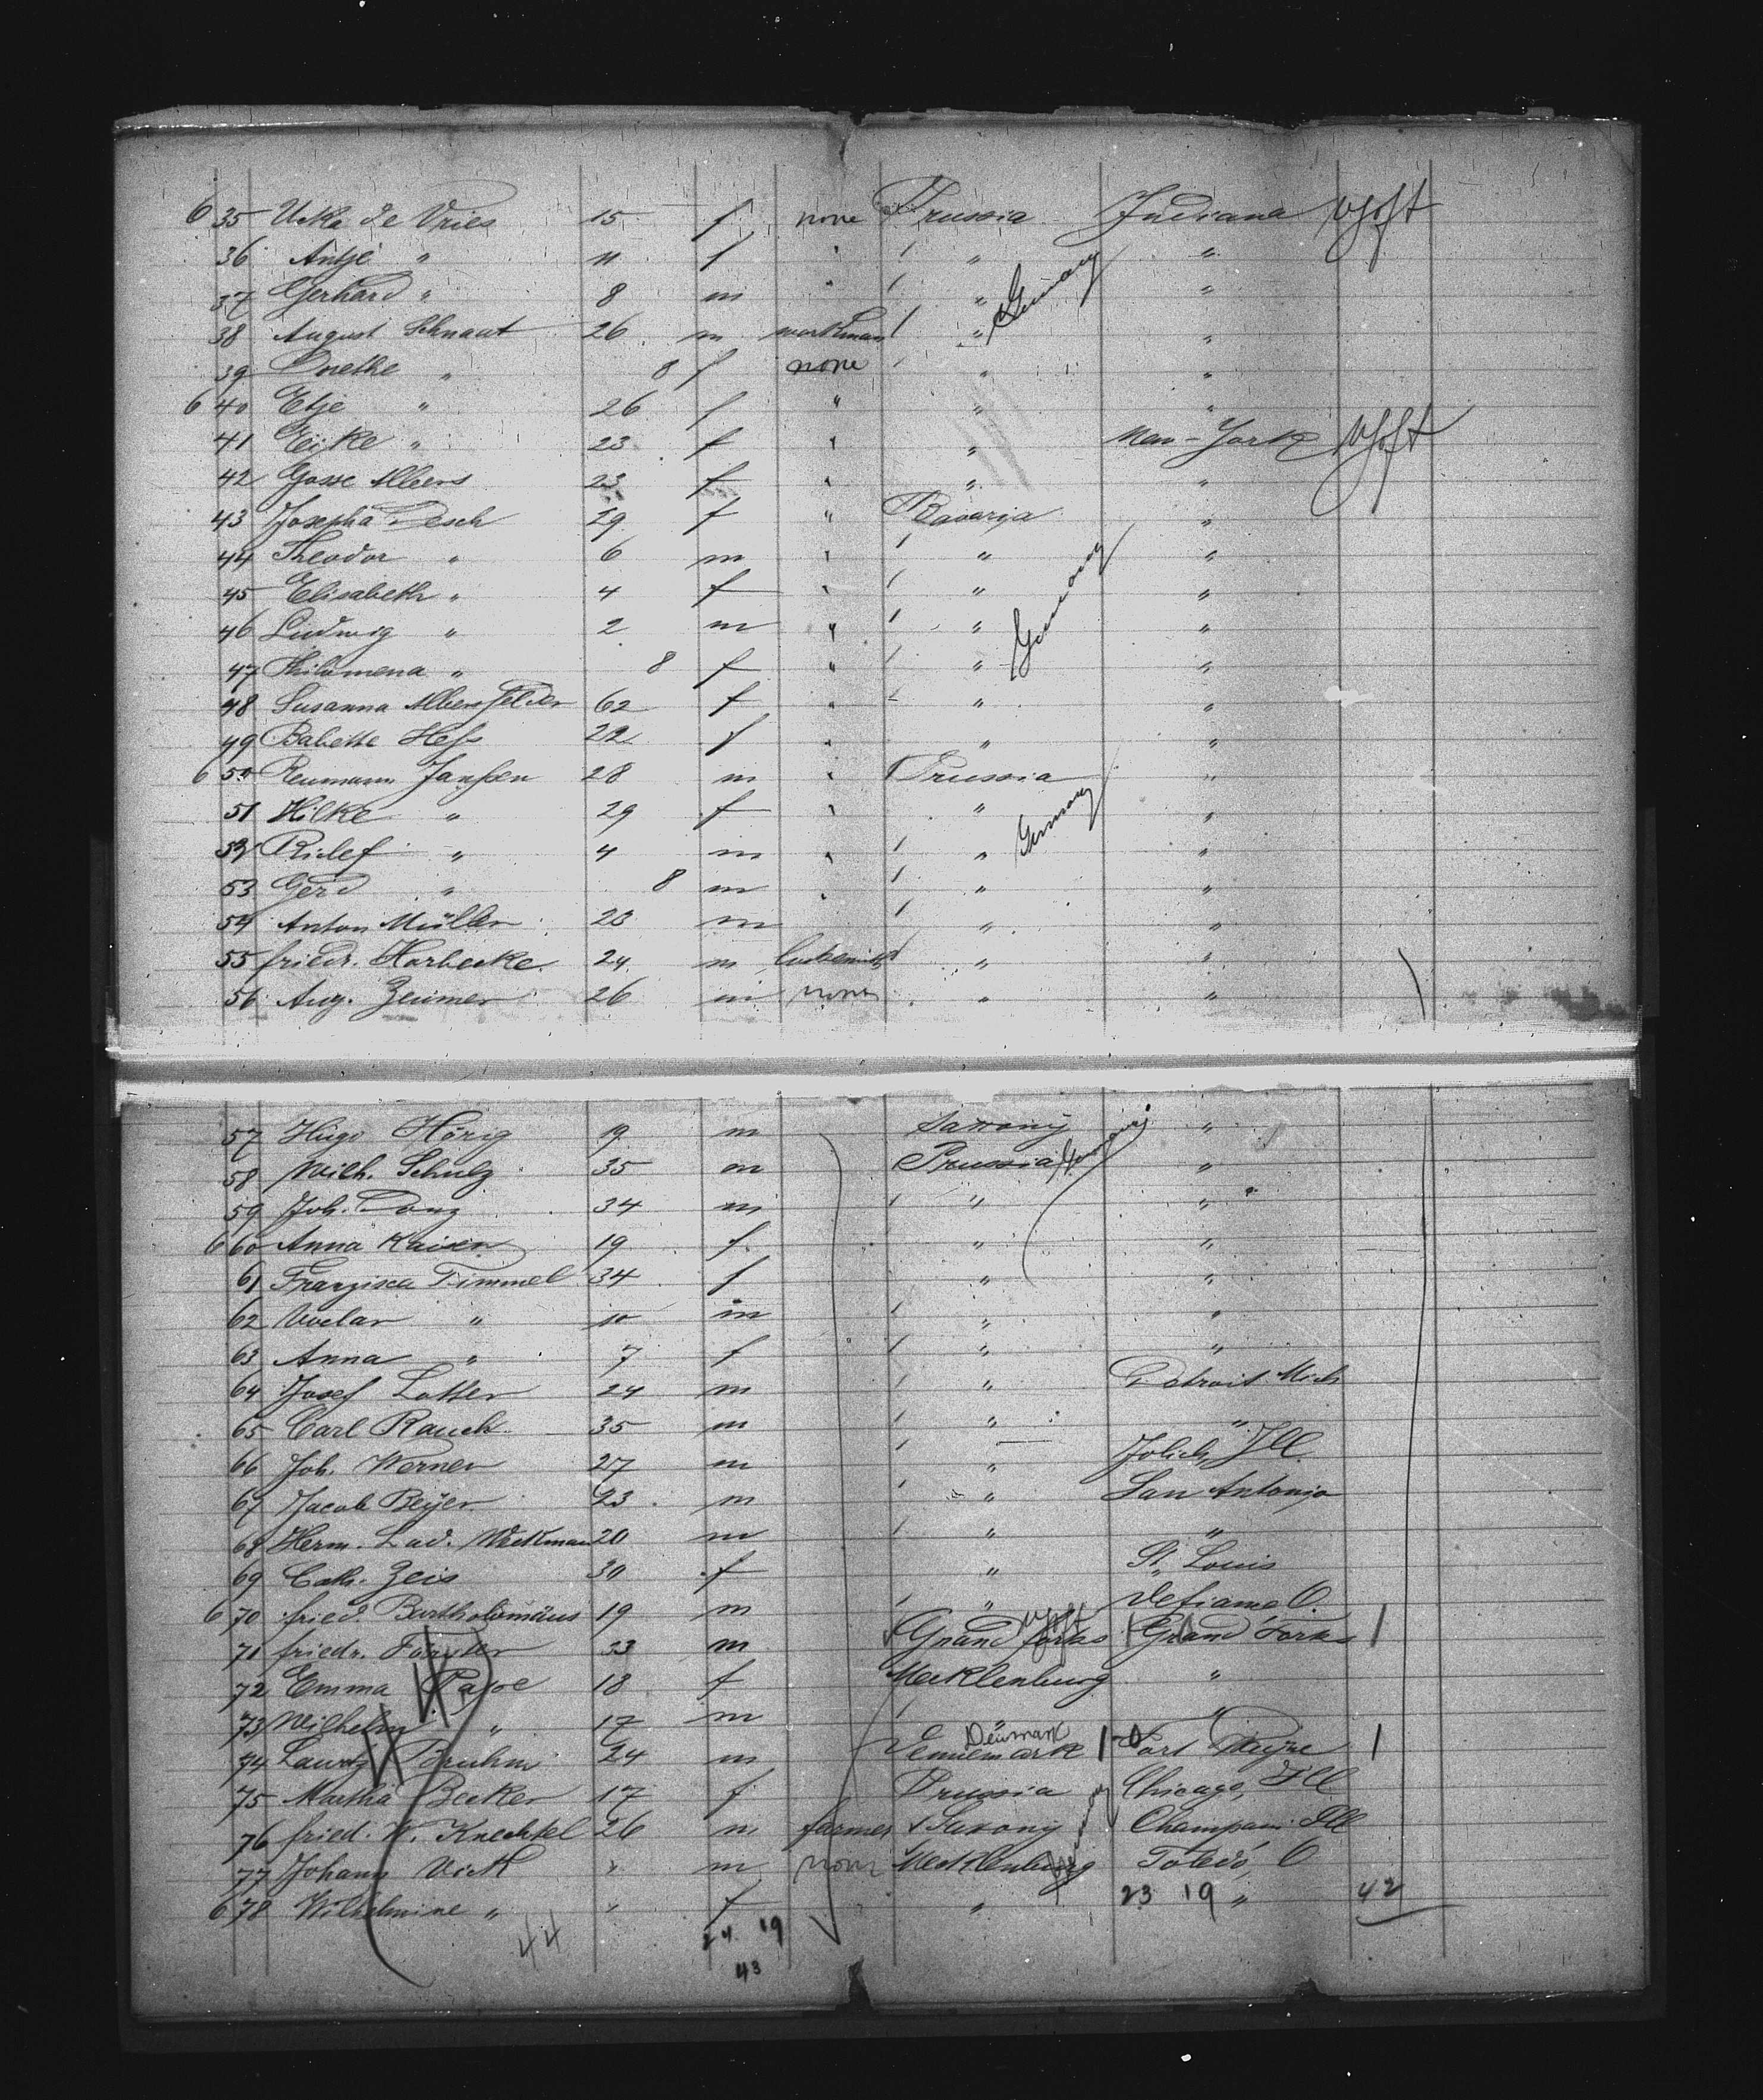 6 35 Ucka de Vries 15 f none Prussia Indiana
36 Antje " 11 f " " "
37 Gerhard " 8 m " " "
38 August Schnaut 26 m workman " "
39 Onethe " 8 f none " "
6 40 Etje " 26 f " " "
41 Eijke " 23 f " " New-York
42 Gosse Albers 23 f " " "
43 Josepha Desch 29 f " Bavaria "
44 Theodor " 6 m " " "
45 Elisabeth " 4 f " " "
46 Ludwig " 2 m " " "
47 Philomena " 8 f " " "
48 Susanna Albersfelder 62 f " " "
49 Babette Heß 22 f " " "
6 50 Renmann Janßen 28 m " Prussia "
51 Hilke " 29 f " " "
52 Richef " 4 m " " "
53 Gerd " 8 m " " "
54 Anton Müller 23 m " "
55 friedr. Horbecke 24 m " "
56 Aug. Zeumer 26 m none " "
Germany
Germany
Germany
57 Hugo Hörig 19 m Saxony "
58 Wilh. Schulz 35 m Prussia Germany "
59 Joh. Danz 34 m " "
6 60 Anna Kaisen 19 f " "
61 Franzisca Timmel 34 f " "
62 " 10 m " "
63 Anna " 7 f " "
64 Josef Lotter 24 m " Detroit Mich
65 Carl Rauch 35 m " "
66 Joh. Werner 27 m " Jolich, Ill.
67 Jacob Beijer 23 m " San Antonio
68 Herm. Lud. Wiekman 20 m " "
69 Cath. Zeis 30 f " St. Louis
6 70 fried. Bartholomäus 19 m " Defiance O.
71 friedr. Förster 23 m Grand forks Grand Forks 1
72 Emma Pape 18 f Mecklenburg "
73 Wilhelm " 17 m " "
74 Lauritz Bruhn 24 m Dennemark Denmark 1 Fort Weyne 1
75 Martha Becker 17 f Prussia Chicago, Ill
76 fried. W. Knechtel 26 m farmer Saxony Champain Ill
77 Johann Vick " m none Mecklenburg Toledo, O
6 78 Wilhelmine " " f " "
23 19 42
44 24 19
43